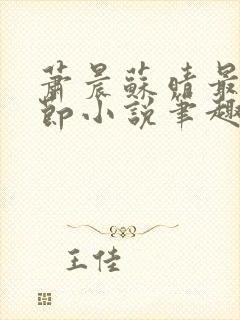 蕭晨蘇晴最
節小說筆趣
王佳